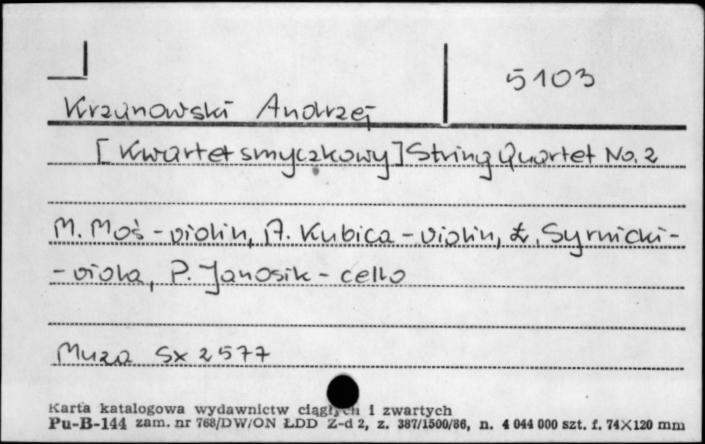 5103
Krzanowski Andrzej
[Kwartet smyczkowy] String Quartet No. 2
M. Moś - violin, A. Kubica - violin, Ł. Syrnicki -
- viola, P. Janosik - cello
Muza SX 2577
Karta katalogowa wydawnictw ciągłych i zwartych
Pu-B-144 zam. nr 768/DW/ON ŁDD Z-d 2, z. 387/1500/86, n. 4 044 000 szt. f. 74×120 mm